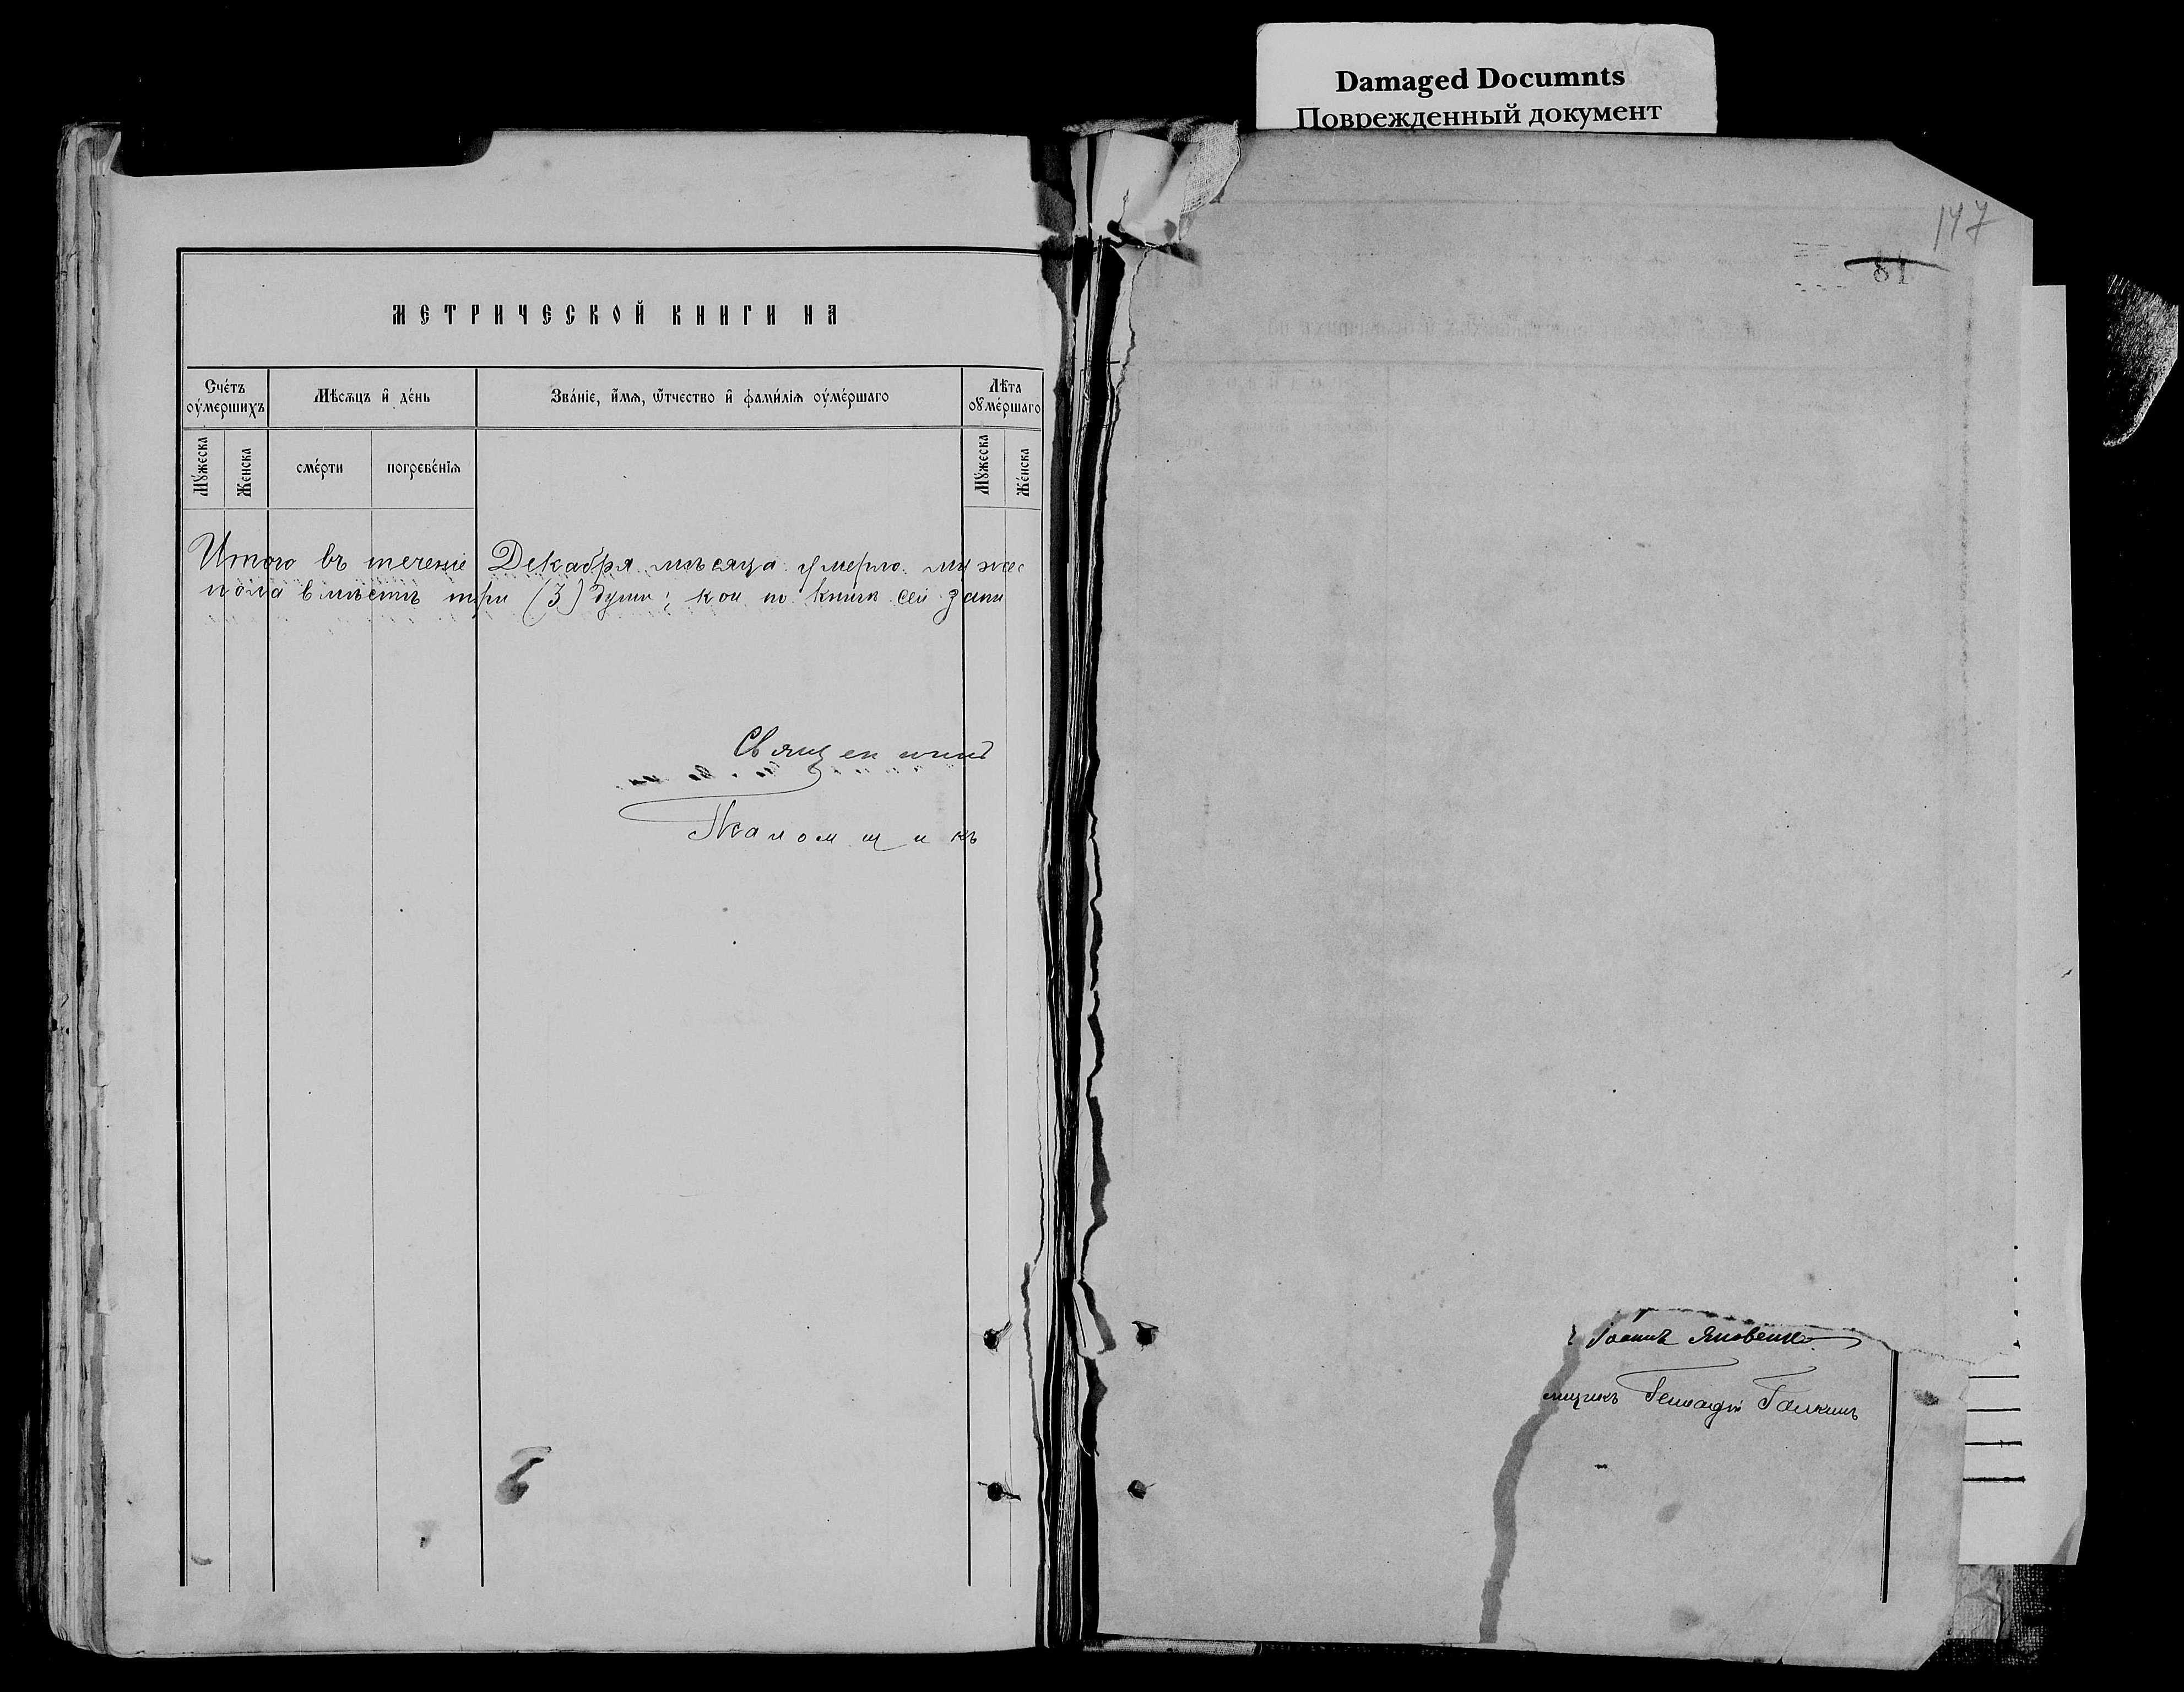 Damaged Documnts
Поврежденный документ
147
81
МЕТРИЧЕСКОЙ КНИГИ НА
Сче́тъ оу҆ме́ршихъ
Мѣ́сѧцъ и҆ де́нь
Зва́нїе, и҆́мѧ, ѿтчество и҆ фами́лїѧ оу҆ме́ршаго
Лѣ̑та оу҆ме́ршаго
Мꙋ́жеска
Же́нска
сме́рти
погребе́нїѧ
Мꙋ́жеска
Же́нска
Итого въ теченіе Декабря мѣсяца умерло мужес
пола вмѣстѣ три (3) души; кои по книгѣ сей запи
Священникъ
Псаломщикъ
Іоаннъ Яковенко
мщикъ Геннадій Галкинъ